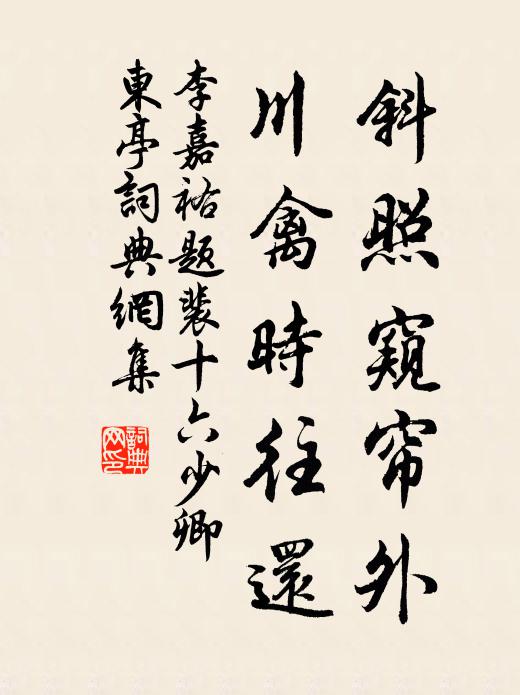 斜照窺帘外
川禽時往還
李嘉祐題裴十六少卿
東亭詞典網集
詞典
网印